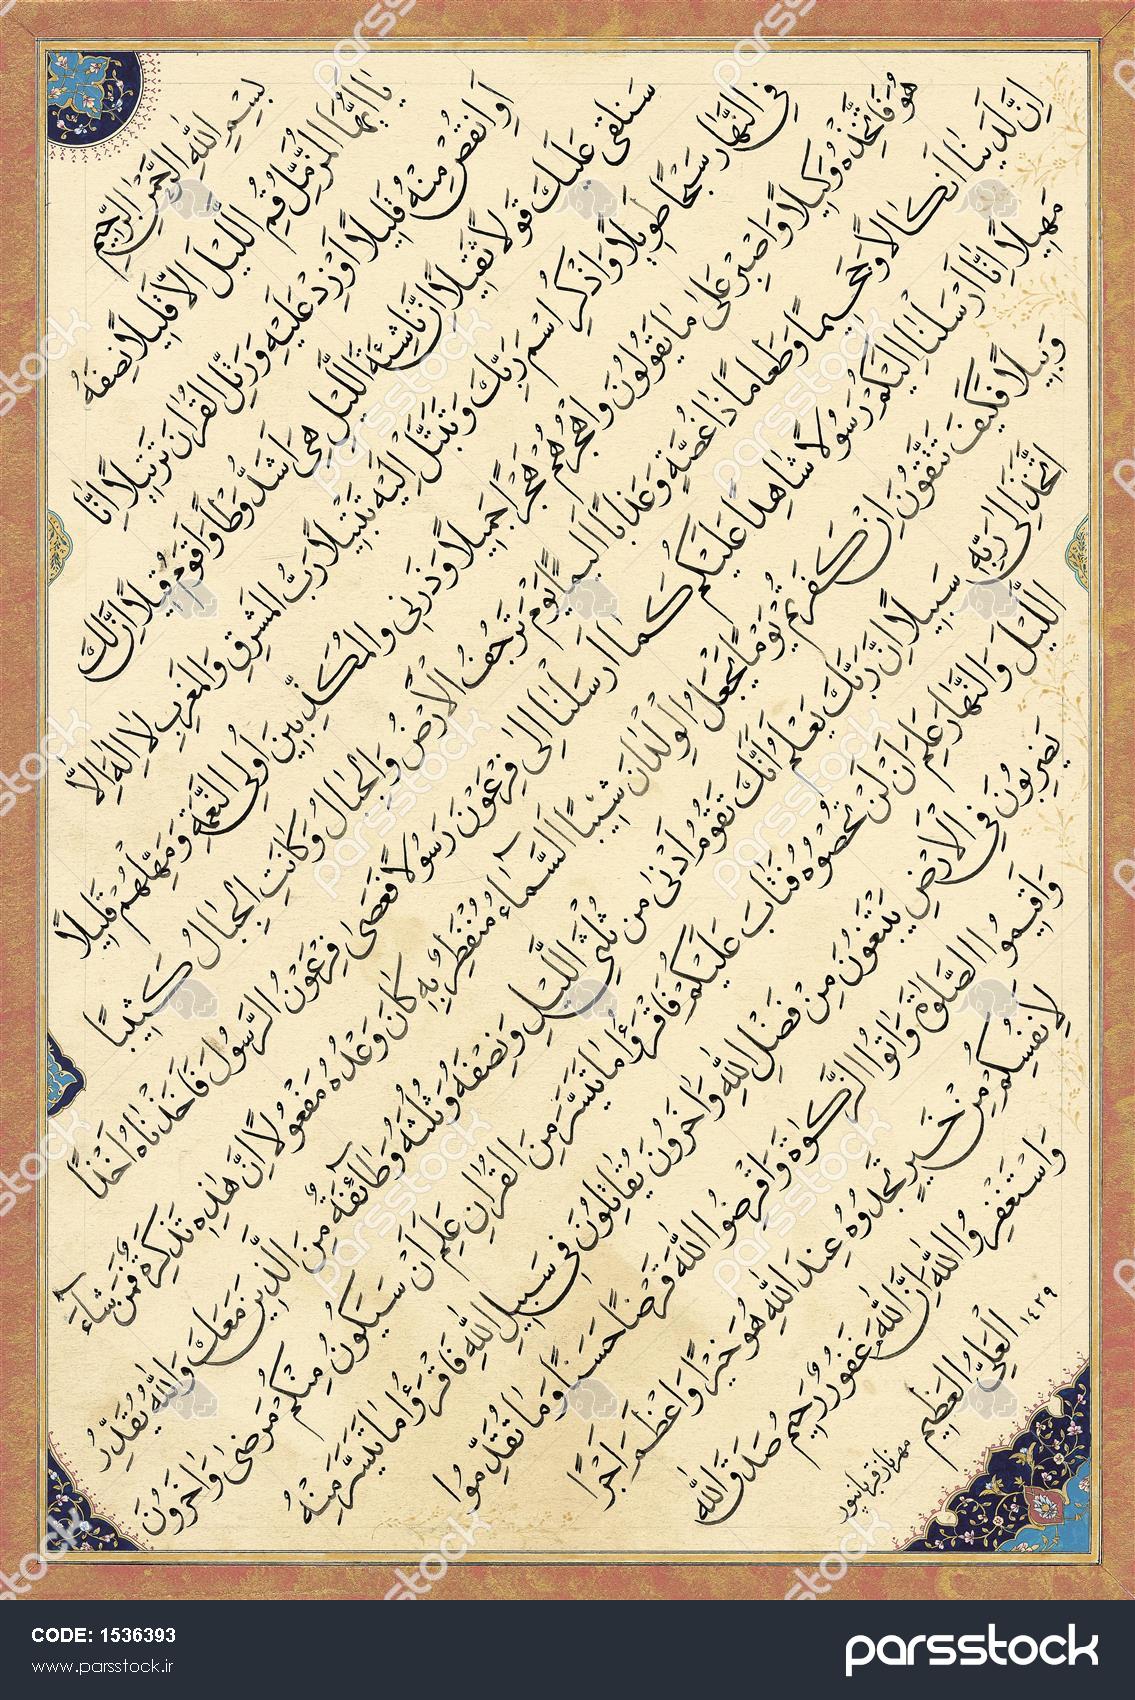 بِسْمِ اللهِ الرَّحْمٰنِ الرَّحِيمِ
يَا اَيُّهَا الْمُزَّمِّلُ قُمِ اللَّيْلَ اِلَّا قَلِيلًا نِصْفَهُ
اَوِ انْقُصْ مِنْهُ قَلِيلًا اَوْ زِدْ عَلَيْهِ وَرَتِّلِ الْقُرْاٰنَ تَرْتِيلًا اِنَّا
سَنُلْقِى عَلَيْكَ قَوْلًا ثَقِيلًا اِنَّ نَاشِئَةَ اللَّيْلِ هِىَ اَشَدُّ وَطْأً وَاَقْوَمُ قِيلًا اِنَّ لَكَ
فِى النَّهَارِ سَبْحًا طَوِيلًا وَاذْكُرِ اسْمَ رَبِّكَ وَتَبَتَّلْ اِلَيْهِ تَبْتِيلًا رَبُّ الْمَشْرِقِ وَالْمَغْرِبِ لَا اِلٰهَ اِلَّا
هُوَ فَاتَّخِذْهُ وَكِيلًا وَاصْبِرْ عَلٰى مَا يَقُولُونَ وَاهْجُرْهُمْ هَجْرًا جَمِيلًا وَذَرْنِى وَالْمُكَذِّبِينَ اُولِى النَّعْمَةِ وَمَهِّلْهُمْ قَلِيلًا
اِنَّ لَدَيْنَا اَنْكَالًا وَجَحِيمًا وَطَعَامًا ذَا غُصَّةٍ وَعَذَابًا اَلِيمًا يَوْمَ تَرْجُفُ الْاَرْضُ وَالْجِبَالُ وَكَانَتِ الْجِبَالُ كَثِيبًا
مَهِيلًا اِنَّا اَرْسَلْنَا اِلَيْكُمْ رَسُولًا شَاهِدًا عَلَيْكُمْ كَمَا اَرْسَلْنَا اِلٰى فِرْعَوْنَ رَسُولًا فَعَصٰى فِرْعَوْنُ الرَّسُولَ فَاَخَذْنَاهُ اَخْذًا
وَبِيلًا فَكَيْفَ تَتَّقُونَ اِنْ كَفَرْتُمْ يَوْمًا يَجْعَلُ الْوِلْدَانَ شِيبًا اَلسَّمَاءُ مُنْفَطِرٌ بِهِ كَانَ وَعْدُهُ مَفْعُولًا اِنَّ هٰذِهِ تَذْكِرَةٌ فَمَنْ شَاءَ
اتَّخَذَ اِلٰى رَبِّهِ سَبِيلًا اِنَّ رَبَّكَ يَعْلَمُ اَنَّكَ تَقُومُ اَدْنٰى مِنْ ثُلُثَىِ اللَّيْلِ وَنِصْفَهُ وَثُلُثَهُ وَطَائِفَةٌ مِنَ الَّذِينَ مَعَكَ وَاللهُ يُقَدِّرُ
اللَّيْلَ وَالنَّهَارَ عَلِمَ اَنْ لَنْ تُحْصُوهُ فَتَابَ عَلَيْكُمْ فَاقْرَؤُا مَا تَيَسَّرَ مِنَ الْقُرْاٰنِ عَلِمَ اَنْ سَيَكُونُ مِنْكُمْ مَرْضٰى وَاٰخَرُونَ
يَضْرِبُونَ فِى الْاَرْضِ يَبْتَغُونَ مِنْ فَضْلِ اللهِ وَاٰخَرُونَ يُقَاتِلُونَ فِى سَبِيلِ اللهِ فَاقْرَؤُا مَا تَيَسَّرَ مِنْهُ
وَاَقِيمُوا الصَّلٰوةَ وَاٰتُوا الزَّكٰوةَ وَاَقْرِضُوا اللهَ قَرْضًا حَسَنًا وَمَا تُقَدِّمُوا
لِاَنْفُسِكُمْ مِنْ خَيْرٍ تَجِدُوهُ عِنْدَ اللهِ هُوَ خَيْرًا وَاَعْظَمَ اَجْرًا
وَاسْتَغْفِرُوا اللهَ اِنَّ اللهَ غَفُورٌ رَحِيمٌ صَدَقَ اللهُ
الْعَلِىُّ الْعَظِيمُ
١٤٢٩
مهرناز قربانپور
CODE: 1536393
www.parsstock.ir
parsstock